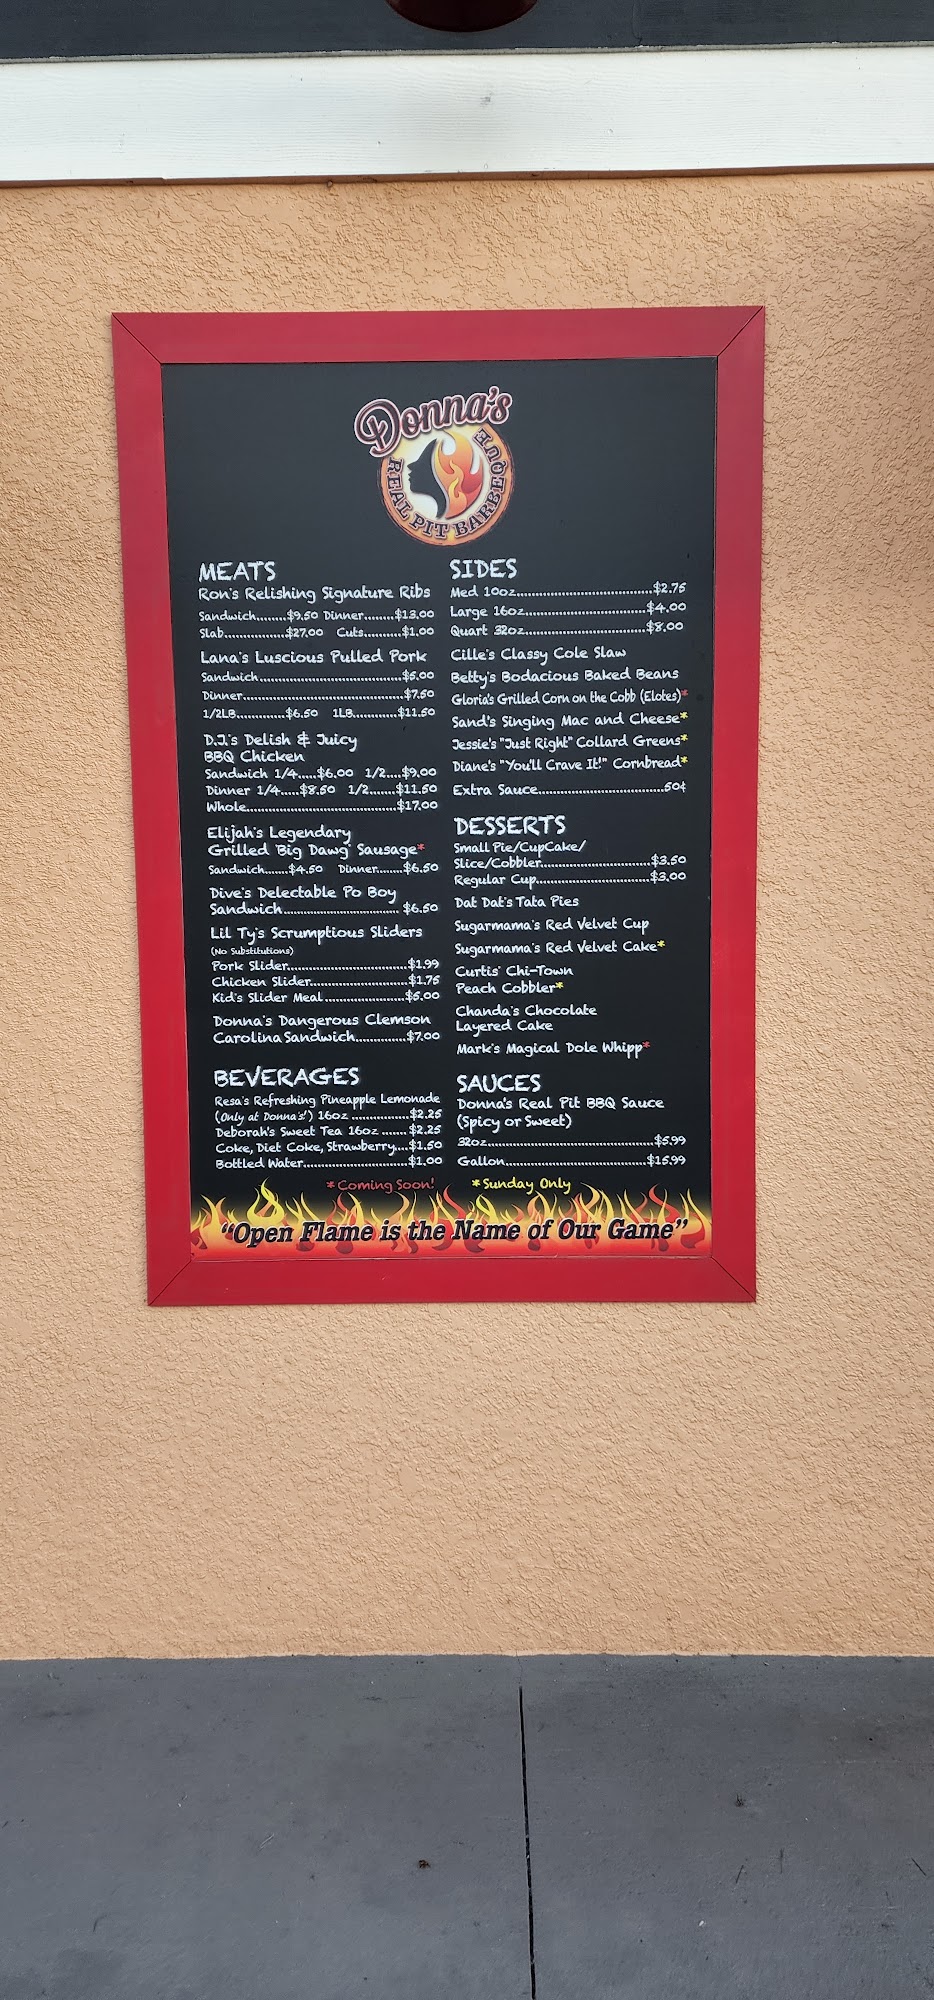 Donna's
REAL PIT BARBEQUE
MEATS
Ron's Relishing Signature Ribs
Sandwich........$9.50 Dinner........$13.00
Slab...............$27.00 Cuts..........$1.00
Lana's Luscious Pulled Pork
Sandwich.....................................$6.00
Dinner..........................................$7.50
1/2LB.............$6.50 1LB............$11.50
D.J.'s Delish & Juicy
BBQ Chicken
Sandwich 1/4.....$6.00 1/2....$9.00
Dinner 1/4.....$8.50 1/2.......$11.50
Whole..........................................$17.00
Elijah's Legendary
Grilled 'Big Dawg' Sausage*
Sandwich.......$4.50 Dinner.......$6.50
Dive's Delectable Po Boy
Sandwich.............................. $6.50
Lil Ty's Scrumptious Sliders
(No Substitutions)
Pork Slider...............................$1.99
Chicken Slider.........................$1.75
Kid's Slider Meal.....................$5.00
Donna's Dangerous Clemson
Carolina Sandwich.............$7.00
BEVERAGES
Resa's Refreshing Pineapple Lemonade
(Only at Donna's!) 16oz ...............$2.25
Deborah's Sweet Tea 16oz .......$2.25
Coke, Diet Coke, Strawberry....$1.50
Bottled Water...........................$1.00
SIDES
Med 10oz...................................$2.75
Large 16oz...............................$4.00
Quart 32oz...............................$8.00
Cille's Classy Cole Slaw
Betty's Bodacious Baked Beans
Gloria's Grilled Corn on the Cobb (Elotes)*
Sand's Singing Mac and Cheese*
Jessie's "Just Right" Collard Greens*
Diane's "You'll Crave It!" Cornbread*
Extra Sauce.................................50¢
DESSERTS
Small Pie/CupCake/
Slice/Cobbler.............................$3.50
Regular Cup..............................$3.00
Dat Dat's Tata Pies
Sugarmama's Red Velvet Cup
Sugarmama's Red Velvet Cake*
Curtis' Chi-Town
Peach Cobbler*
Chanda's Chocolate
Layered Cake
Mark's Magical Dole Whipp*
SAUCES
Donna's Real Pit BBQ Sauce
(Spicy or Sweet)
32oz...........................................$5.99
Gallon....................................$15.99
*Coming Soon! *Sunday Only
"Open Flame is the Name of Our Game"